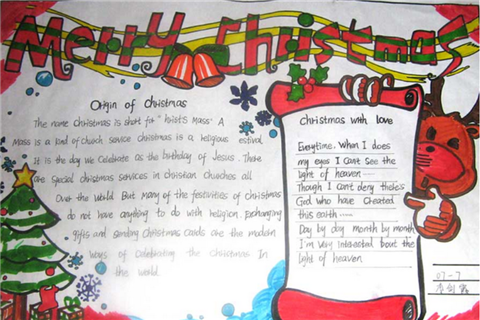 Merry Christmas
Origin of Christmas
The name Christmas is short for "hrist's Mass" A
Mass is a kind of chuech sovice christmas is a religious estival
It is the day we celebrate as the birthday of Jesus. There
are special christmas services in christian churches all
Over the World But Many of the festivities of christmas
do not have anything to do with religion. Exchanging
gifts and sending Christmas Cards are the modern
Ways of Celebrating the Christmas In
the World.
Christmas with love
Everytime. When I does
my eyes I Can't See the
light of heaven
Though I Can't deny there's
God who have Created
this earth
Day by day month by month
I'm Very interacted 'bout the
light of heaven
07-7